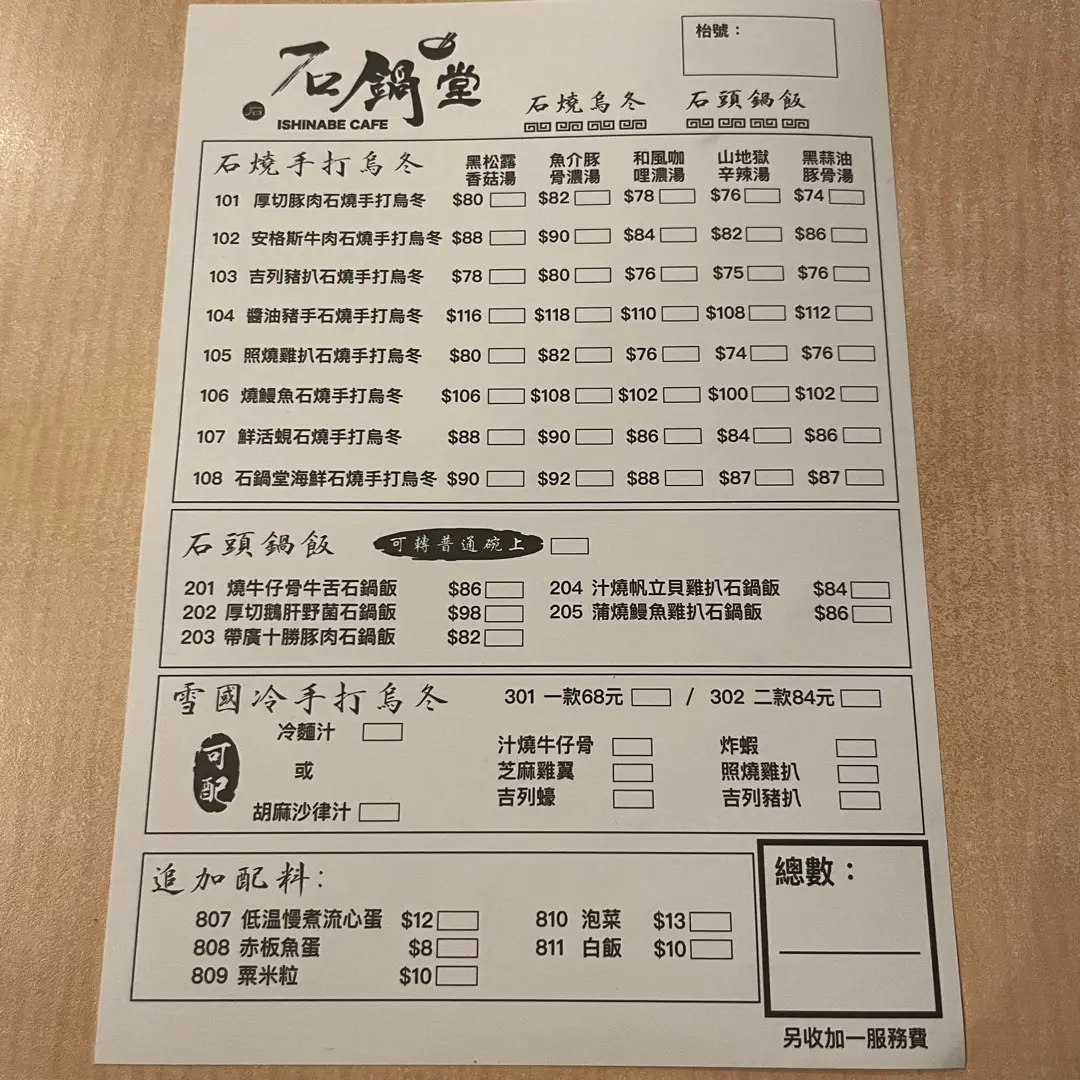 枱號：
石鍋堂
石
ISHINABE CAFE
石燒烏冬 石頭鍋飯
石燒手打烏冬 黑松露香菇湯 魚介豚骨濃湯 和風咖哩濃湯 山地獄辛辣湯 黑蒜油豚骨湯
101 厚切豚肉石燒手打烏冬 $80 $82 $78 $76 $74
102 安格斯牛肉石燒手打烏冬 $88 $90 $84 $82 $86
103 吉列豬扒石燒手打烏冬 $78 $80 $76 $75 $76
104 醬油豬手石燒手打烏冬 $116 $118 $110 $108 $112
105 照燒雞扒石燒手打烏冬 $80 $82 $76 $74 $76
106 燒鰻魚石燒手打烏冬 $106 $108 $102 $100 $102
107 鮮活蜆石燒手打烏冬 $88 $90 $86 $84 $86
108 石鍋堂海鮮石燒手打烏冬 $90 $92 $88 $87 $87
石頭鍋飯 可轉普通碗上
201 燒牛仔骨牛舌石鍋飯 $86 204 汁燒帆立貝雞扒石鍋飯 $84
202 厚切鵝肝野菌石鍋飯 $98 205 蒲燒鰻魚雞扒石鍋飯 $86
203 帶廣十勝豚肉石鍋飯 $82
雪國冷手打烏冬 301 一款68元 / 302 二款84元
可配
冷麵汁
或
胡麻沙律汁
汁燒牛仔骨 炸蝦
芝麻雞翼 照燒雞扒
吉列蠔 吉列豬扒
追加配料：
807 低温慢煮流心蛋 $12 810 泡菜 $13
808 赤板魚蛋 $8 811 白飯 $10
809 粟米粒 $10
總數：
另收加一服務費